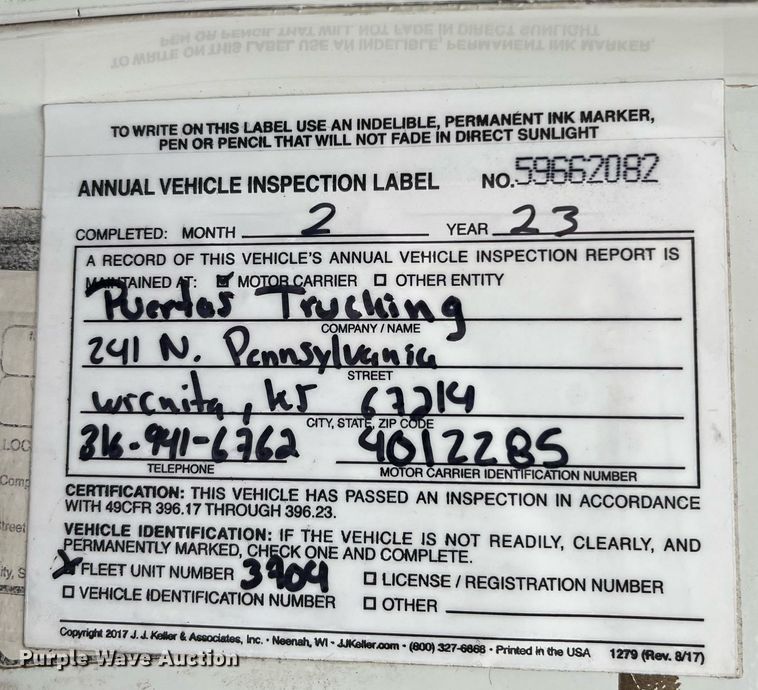 PEN OR PENCIL THAT WILL NOT FADE IN DIRECT SUNLIGHT
TO WRITE ON THIS LABEL USE AN INDELIBLE, PERMANENT INK MARKER,
TO WRITE ON THIS LABEL USE AN INDELIBLE, PERMANENT INK MARKER,
PEN OR PENCIL THAT WILL NOT FADE IN DIRECT SUNLIGHT
ANNUAL VEHICLE INSPECTION LABEL NO. 59662082
COMPLETED: MONTH 2 YEAR 23
A RECORD OF THIS VEHICLE'S ANNUAL VEHICLE INSPECTION REPORT IS
MAINTAINED AT: ☑ MOTOR CARRIER ☐ OTHER ENTITY
Puertas Trucking
COMPANY / NAME
241 N. Pennsylvania
STREET
Wicnita, KS 67214
CITY, STATE, ZIP CODE
316-941-6762 4012285
TELEPHONE MOTOR CARRIER IDENTIFICATION NUMBER
CERTIFICATION: THIS VEHICLE HAS PASSED AN INSPECTION IN ACCORDANCE
WITH 49CFR 396.17 THROUGH 396.23.
VEHICLE IDENTIFICATION: IF THE VEHICLE IS NOT READILY, CLEARLY, AND
PERMANENTLY MARKED, CHECK ONE AND COMPLETE.
X FLEET UNIT NUMBER 3904 ☐ LICENSE / REGISTRATION NUMBER
☐ VEHICLE IDENTIFICATION NUMBER ☐ OTHER
Copyright 2017 J. J. Keller & Associates, Inc. • Neenah, WI • JJKeller.com • (800) 327-6868 • Printed in the USA 1279 (Rev. 8/17)
LOC
Comp
treet
ity, S
Purple Wave Auction